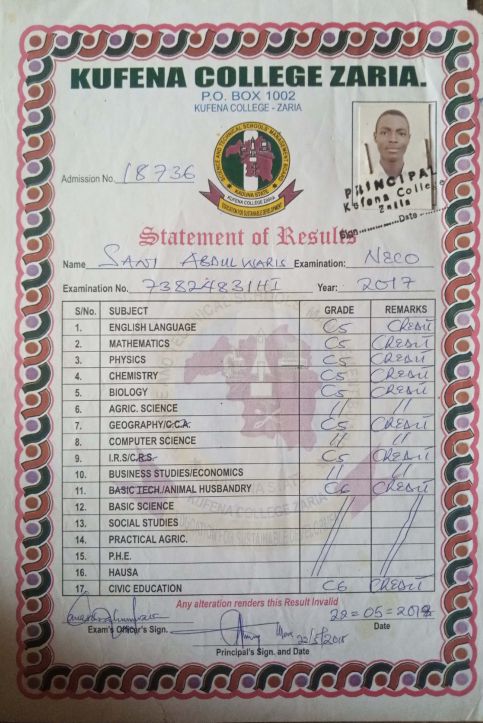 KUFENA COLLEGE ZARIA.
P.O. BOX 1002
KUFENA COLLEGE - ZARIA
SCIENCE AND TECHNICAL SCHOOLS MANAGEMENT BOARD
KADUNA STATE
KUFENA COLLEGE ZARIA
EDUCATION FOR SUSTAINABLE DEVELOPMENT
PRINCIPAL
Kufena College
Zaria
Sign............Date............
Admission No. 18736
Statement of Results
Name SANI ABDULWARIS Examination: NECO
Examination No. 73824831HI Year: 2017
S/No. SUBJECT GRADE REMARKS
1. ENGLISH LANGUAGE C5 CREDIT
2. MATHEMATICS C5 CREDIT
3. PHYSICS C5 CREDIT
4. CHEMISTRY C5 CREDIT
5. BIOLOGY C5 CREDIT
6. AGRIC. SCIENCE // //
7. GEOGRAPHY/C.C.A. C5 CREDIT
8. COMPUTER SCIENCE // //
9. I.R.S/C.R.S. C5 CREDIT
10. BUSINESS STUDIES/ECONOMICS // //
11. BASIC TECH./ANIMAL HUSBANDRY C6 CREDIT
12. BASIC SCIENCE
13. SOCIAL STUDIES
14. PRACTICAL AGRIC.
15. P.H.E.
16. HAUSA
17. CIVIC EDUCATION C6 CREDIT
Any alteration renders this Result Invalid
22-05-2018
Exam's Officer's Sign. Date
22/5/2018
Principal's Sign. and Date